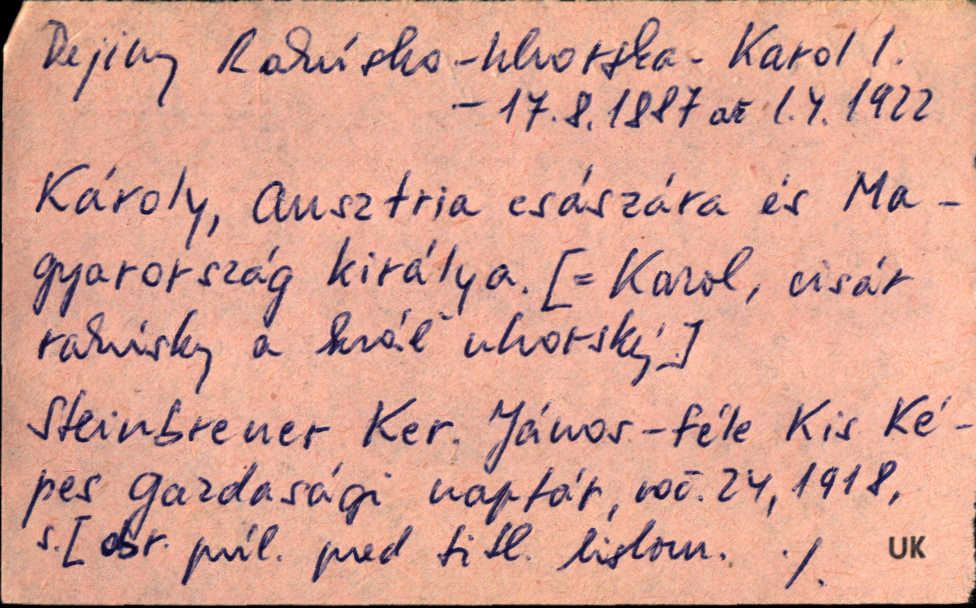 Dejiny Rakúsko-Uhorska - Karol I.
- 17.8.1887 až 1.4.1922
Károly, Ausztria császára és Ma-
gyarország királya. [= Karol, cisár
rakúsky a kráľ uhorský.]
Steinbrener Ker. János-féle Kis Ké-
pes Gazdasági naptár, roč. 24, 1918,
s. [obr. príl. pred titl. listom. ./.
UK